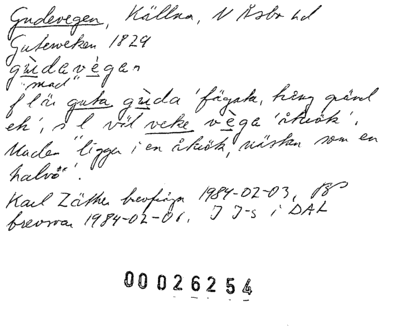 Gudevegen, Källna, N Åsbo hd
Guteweken 1829
gùdavègan
"mad"
f l är guta gùda 'fägata, kring gärd
ek', s l väl veke vèga 'åkrök'.
Maden "ligger i en åkrök, nästan som en
halvö".
Karl Zäther brevfråga 1984-02-03,
brevsvar 1984-02-06. I J-s i DAL
00026254